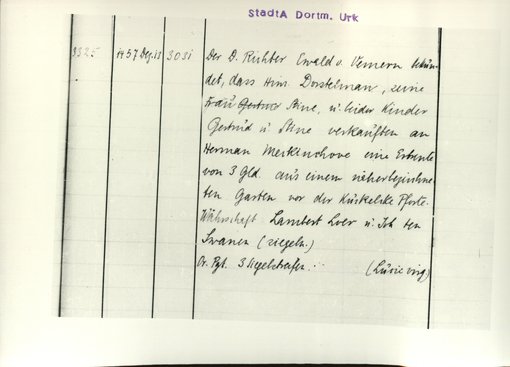 StadtA Dortm. Urk
3325 1457 Dez. 13 3031 Der D. Richter Ewald v. Vemern bekun-
det, dass Hinr. Dorstelman, seine
Frau Gertrud Stine, u. beider Kinder
Gertrud u. Stine verkauften an
Herman Merkinchove eine Erbrente
von 3 Gld. aus einem näherbezeichne-
ten Garten vor der Küskelike Pforte.
Währschaft: Lambert Loer u. Joh ten
Swanen (siegeln.)
Or. Pgt. 3 Siegelstreifen.